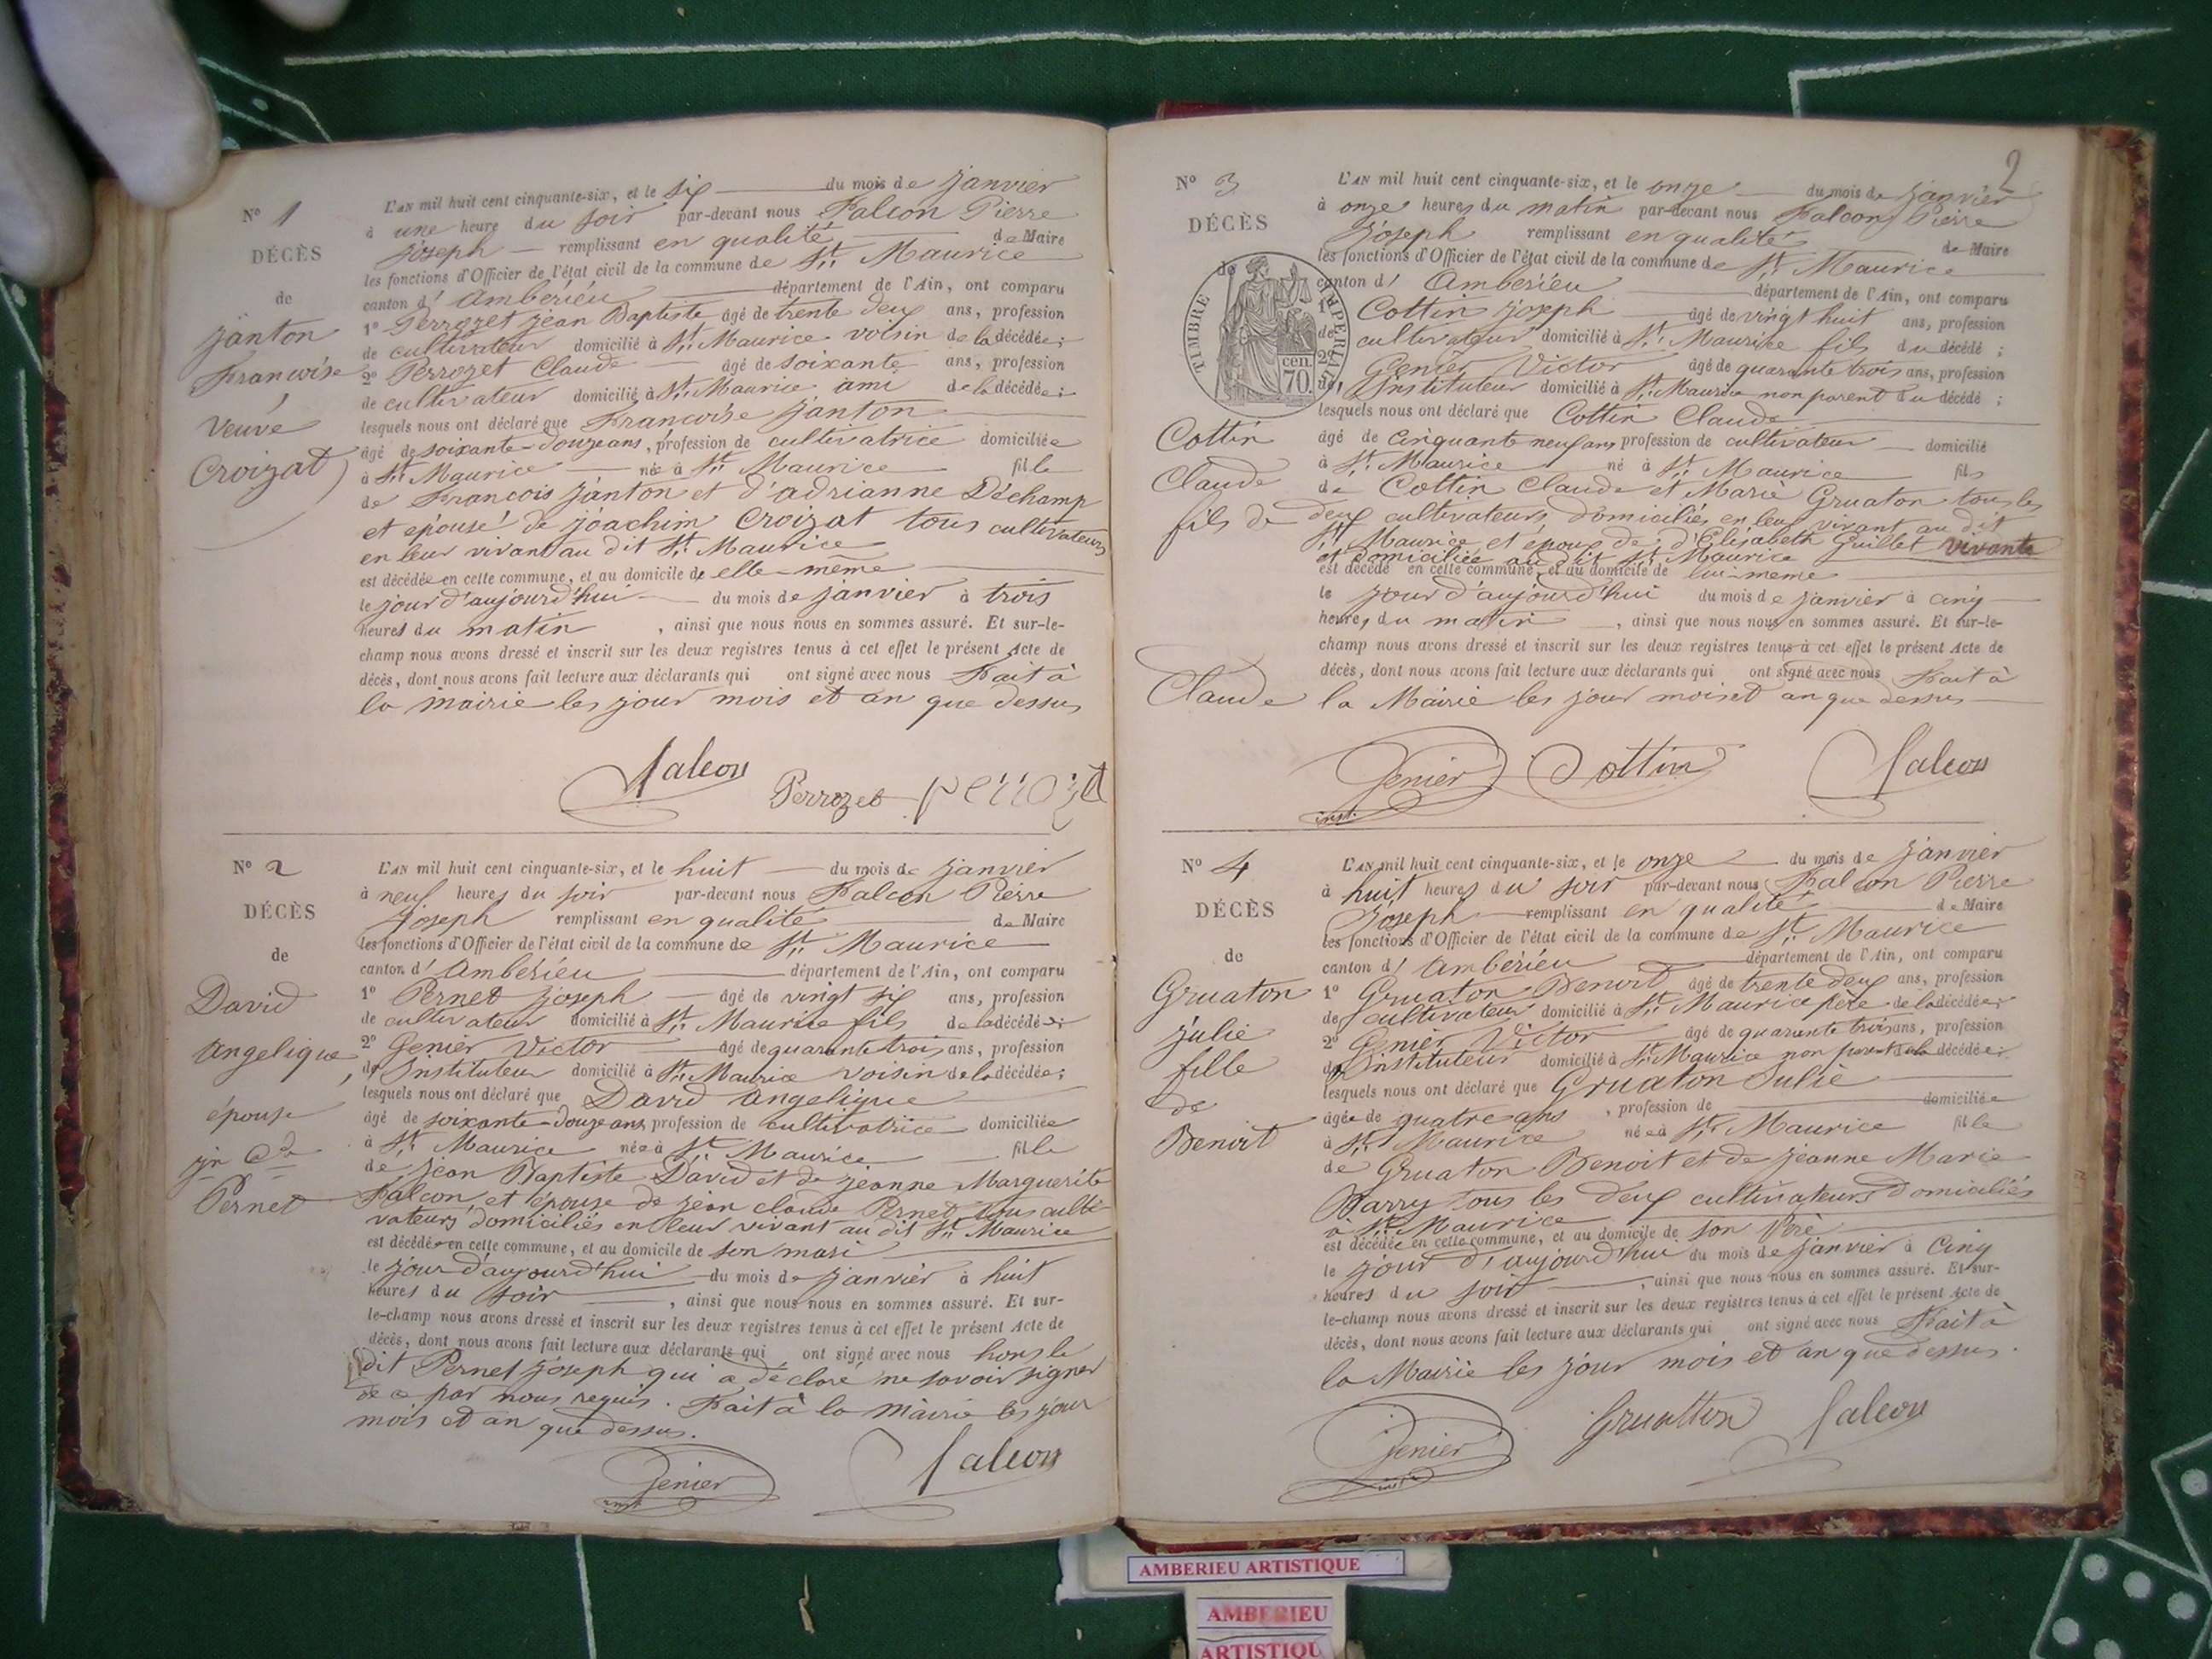 N° 1
DÉCÈS
de
Janton
Francoise
Veuve
Croizat
L'AN mil huit cent cinquante-six, et le six du mois de Janvier
à une heure du soir par-devant nous Falcon Pierre
Joseph remplissant en qualité de Maire
les fonctions d'Officier de l'état civil de la commune de St. Maurice
canton d' Ambérieu département de l'Ain, ont comparu
1° Perrozet Jean Baptiste âgé de trente deux ans, profession
de cultivateur domicilié à St. Maurice voisin de la décédée;
2° Perrozet Claude âgé de soixante ans, profession
de cultivateur domicilié à St. Maurice ami de la décédée;
lesquels nous ont déclaré que Francoise Janton
âgé de soixante-douze ans, profession de cultivatrice domiciliée
à St. Maurice née à St. Maurice fille
de Francois Janton et d'adrianne Déchamp
et épouse de Joachim Croizat tous cultivateurs
en leur vivant au dit St. Maurice
est décédée en cette commune, et au domicile de elle-même
le jour d'aujourd'hui du mois de Janvier à trois
heures du matin, ainsi que nous nous en sommes assuré. Et sur-le-
champ nous avons dressé et inscrit sur les deux registres tenus à cet effet le présent Acte de
décès, dont nous avons fait lecture aux déclarants qui ont signé avec nous Fait à
la mairie les jour mois et an que dessus
Falcon
Perrozet perrozet
N° 2
DÉCÈS
de
David
Angelique,
épouse
jn Cde
Pernet
L'AN mil huit cent cinquante-six, et le huit du mois de Janvier
à neuf heures du soir par-devant nous Falcon Pierre
Joseph remplissant en qualité de Maire
les fonctions d'Officier de l'état civil de la commune de St. Maurice
canton d' Ambérieu département de l'Ain, ont comparu
1° Pernet Joseph âgé de vingt six ans, profession
de cultivateur domicilié à St. Maurice fils de la décédée;
2° Genier Victor âgé de quarante trois ans, profession
d' Instituteur domicilié à St. Maurice voisin de la décédée;
lesquels nous ont déclaré que David Angelique
âgé de soixante-douze ans, profession de cultivatrice domiciliée
à St. Maurice née à St. Maurice fille
de Jean Baptiste David et de Jeanne Marguerite
Falcon, et épouse de Jean claude Pernet tous culti-
vateurs domiciliés en leur vivant au dit St. Maurice
est décédée en cette commune, et au domicile de son mari
le jour d'aujourd'hui du mois de Janvier à huit
heures du soir, ainsi que nous nous en sommes assuré. Et sur-
le-champ nous avons dressé et inscrit sur les deux registres tenus à cet effet le présent Acte de
décès, dont nous avons fait lecture aux déclarants qui ont signé avec nous hors le
dit Pernet Joseph qui a déclaré ne savoir signer
de ce par nous requis. Fait à la mairie les jour
mois et an que dessus.
Genier
inst.
Falcon
2
N° 3
DÉCÈS
de
TIMBRE IMPERIAL
cen.
70
Cottin
Claude
fils de
Claude
L'AN mil huit cent cinquante-six, et le onze du mois de Janvier
à onze heures du matin par-devant nous Falcon Pierre
Joseph remplissant en qualité de Maire
les fonctions d'Officier de l'état civil de la commune de St. Maurice
canton d' Ambérieu département de l'Ain, ont comparu
1° Cottin Joseph âgé de vingt huit ans, profession
de cultivateur domicilié à St. Maurice fils du décédé;
2° Genier Victor âgé de quarante trois ans, profession
d' Instituteur domicilié à St. Maurice non parent du décédé;
lesquels nous ont déclaré que Cottin Claude
âgé de cinquante neuf ans, profession de cultivateur domicilié
à St. Maurice né à St. Maurice fils
de Cottin Claude et Marie Gruaton tous les
deux cultivateurs domiciliés en leur vivant au dit
St. Maurice et époux de d'Elisabeth Guillet vivante
et domiciliée au dit St. Maurice
est décédé en cette commune, et au domicile de lui-même
le jour d'aujourd'hui du mois de Janvier à cinq
heures du matin, ainsi que nous nous en sommes assuré. Et sur-le-
champ nous avons dressé et inscrit sur les deux registres tenus à cet effet le présent Acte de
décès, dont nous avons fait lecture aux déclarants qui ont signé avec nous Fait à
la Mairie les jour mois et an que dessus
Genier Cottin Falcon
inst.
N° 4
DÉCÈS
de
Gruaton
Julie
fille
de
Benoit
L'AN mil huit cent cinquante-six, et le onze du mois de Janvier
à huit heures du soir par-devant nous Falcon Pierre
Joseph remplissant en qualité de Maire
les fonctions d'Officier de l'état civil de la commune de St. Maurice
canton d' Ambérieu département de l'Ain, ont comparu
1° Gruaton Benoit âgé de trente deux ans, profession
de cultivateur domicilié à St. Maurice père de la décédée;
2° Genier Victor âgé de quarante trois ans, profession
d' Instituteur domicilié à St. Maurice non parent de la décédée;
lesquels nous ont déclaré que Gruaton Julie
âgée de quatre ans, profession de domiciliée
à St. Maurice née à St. Maurice fille
de Gruaton Benoit et de Jeanne Marie
Barry tous les deux cultivateurs domiciliés
à St. Maurice
est décédée en cette commune, et au domicile de son Père
le jour d'aujourd'hui du mois de Janvier à Cinq
heures du soir, ainsi que nous nous en sommes assuré. Et sur-
le-champ nous avons dressé et inscrit sur les deux registres tenus à cet effet le présent Acte de
décès, dont nous avons fait lecture aux déclarants qui ont signé avec nous Fait à
la Mairie les jour mois et an que dessus.
Genier Gruatton Falcon
inst.
AMBERIEU ARTISTIQUE
AMBERIEU
ARTISTIQU